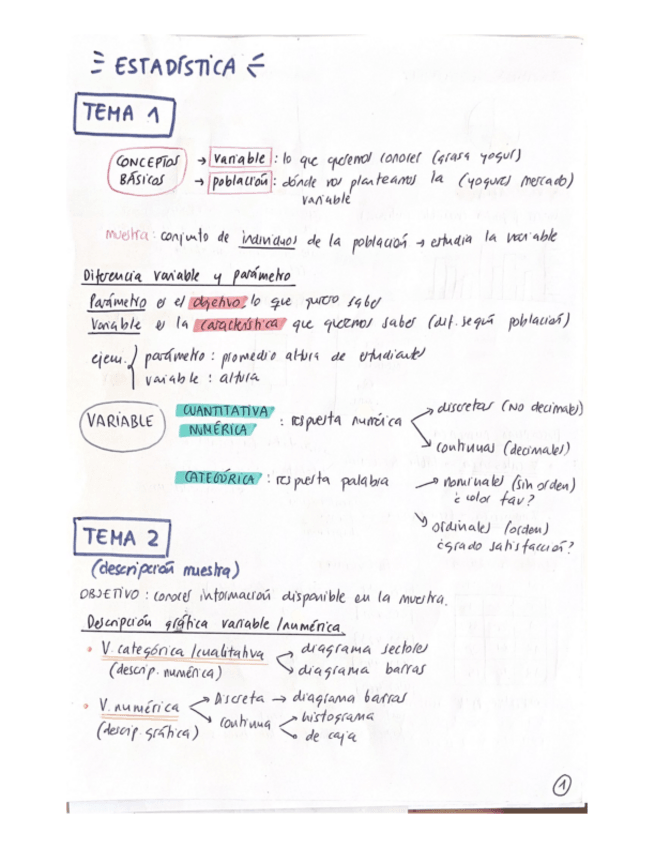 ESTADÍSTICA
TEMA 1
CONCEPTOS BÁSICOS → variable : lo que queremos conocer (grasa yogur)
→ población : dónde nos planteamos la variable (yogures mercado)
muestra : conjunto de individuos de la población → estudia la variable
Diferencia variable y parámetro
Parámetro es el objetivo, lo que quiero saber
Variable es la característica que queremos saber (dif. según población)
ejem. parámetro : promedio altura de estudiantes
variable : altura
VARIABLE CUANTITATIVA NUMÉRICA : respuesta numérica → discretas (NO decimales)
→ continuas (decimales)
CATEGÓRICA : respuesta palabra → nominales (sin orden)
¿color fav?
→ ordinales (orden)
¿grado satisfacción?
TEMA 2
(descripción muestra)
OBJETIVO : conocer información disponible en la muestra.
Descripción gráfica variable / numérica
• V. categórica / cualitativa → diagrama sectores
(descrip. numérica) → diagrama barras
• V. numérica → Discreta → diagrama barras
(descrip. gráfica) → continua → histograma
→ de caja
1